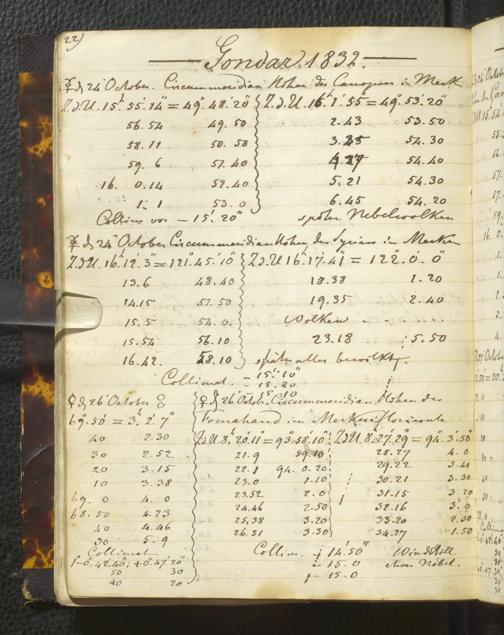 22)
Gondar 1832.
d. 24 October. Circummeridian Höhen des Canopus in Merk
Z.d.U. 15h 55.14" = 49° 48. 20" Z.d.U. 16h 1' 55" = 49° 53' 20"
56.54 49.50 2.43 53.50
58.11 50.50 3.25 54.30
59.6 51.40 4.27 54.40
16. 0.14 52.40 5.21 54.30
1.1 53.0 6.45 54.20
Collim vor – 15'. 20" später Nebelwolken
d. 24 October Circummeridian Höhen des Syrius in Merkur
Z.d.U. 16h 12'. 3" = 121° 45'. 10" Z.d.U. 16h 17'. 41" = 122°. 0'. 0"
13.6 48.40 18.38 1.20
14.15 51.50 19.35 2.40
15.5 54.0 Wolken
15.54 56.10 23.18 5.50
16.42. 58.10 später alles bewölkt
Collimat. – 15'. 10"
– 15. 20
– 15. 10
d. 26 October d. 26 Octob. Circummeridian Höhen des
69°. 50' = 3h. 2'. 7" Fomahand in Merkurhorizonte
40 2.30 Z.d.U. 8h. 20.11 = 93° 58'. 10" Z.d.U. 8. 27. 29 = 94°. 3'. 50"
30 2.52 21.9 59.10 28.27 4.0
20 3.15 22.1 94. 0. 20 29.22 3.40
10 3.38 23.0 1.10 30.21 3.30
69. 0 4.0 23.52 2.0 31.15 3.20
68.50 4.23 24.46 2.50 32.16 3.0
40 4.46 25.38 3.20 33.20 2.30
30 5.9 26.31 3.30 34.27 1.50
Collimat Collim. – 14'. 50" Windstill
– 0.42.40; + 0.47'. 20" – 15. 0 etwas Nebel.
50 30 – 15.0
40 20